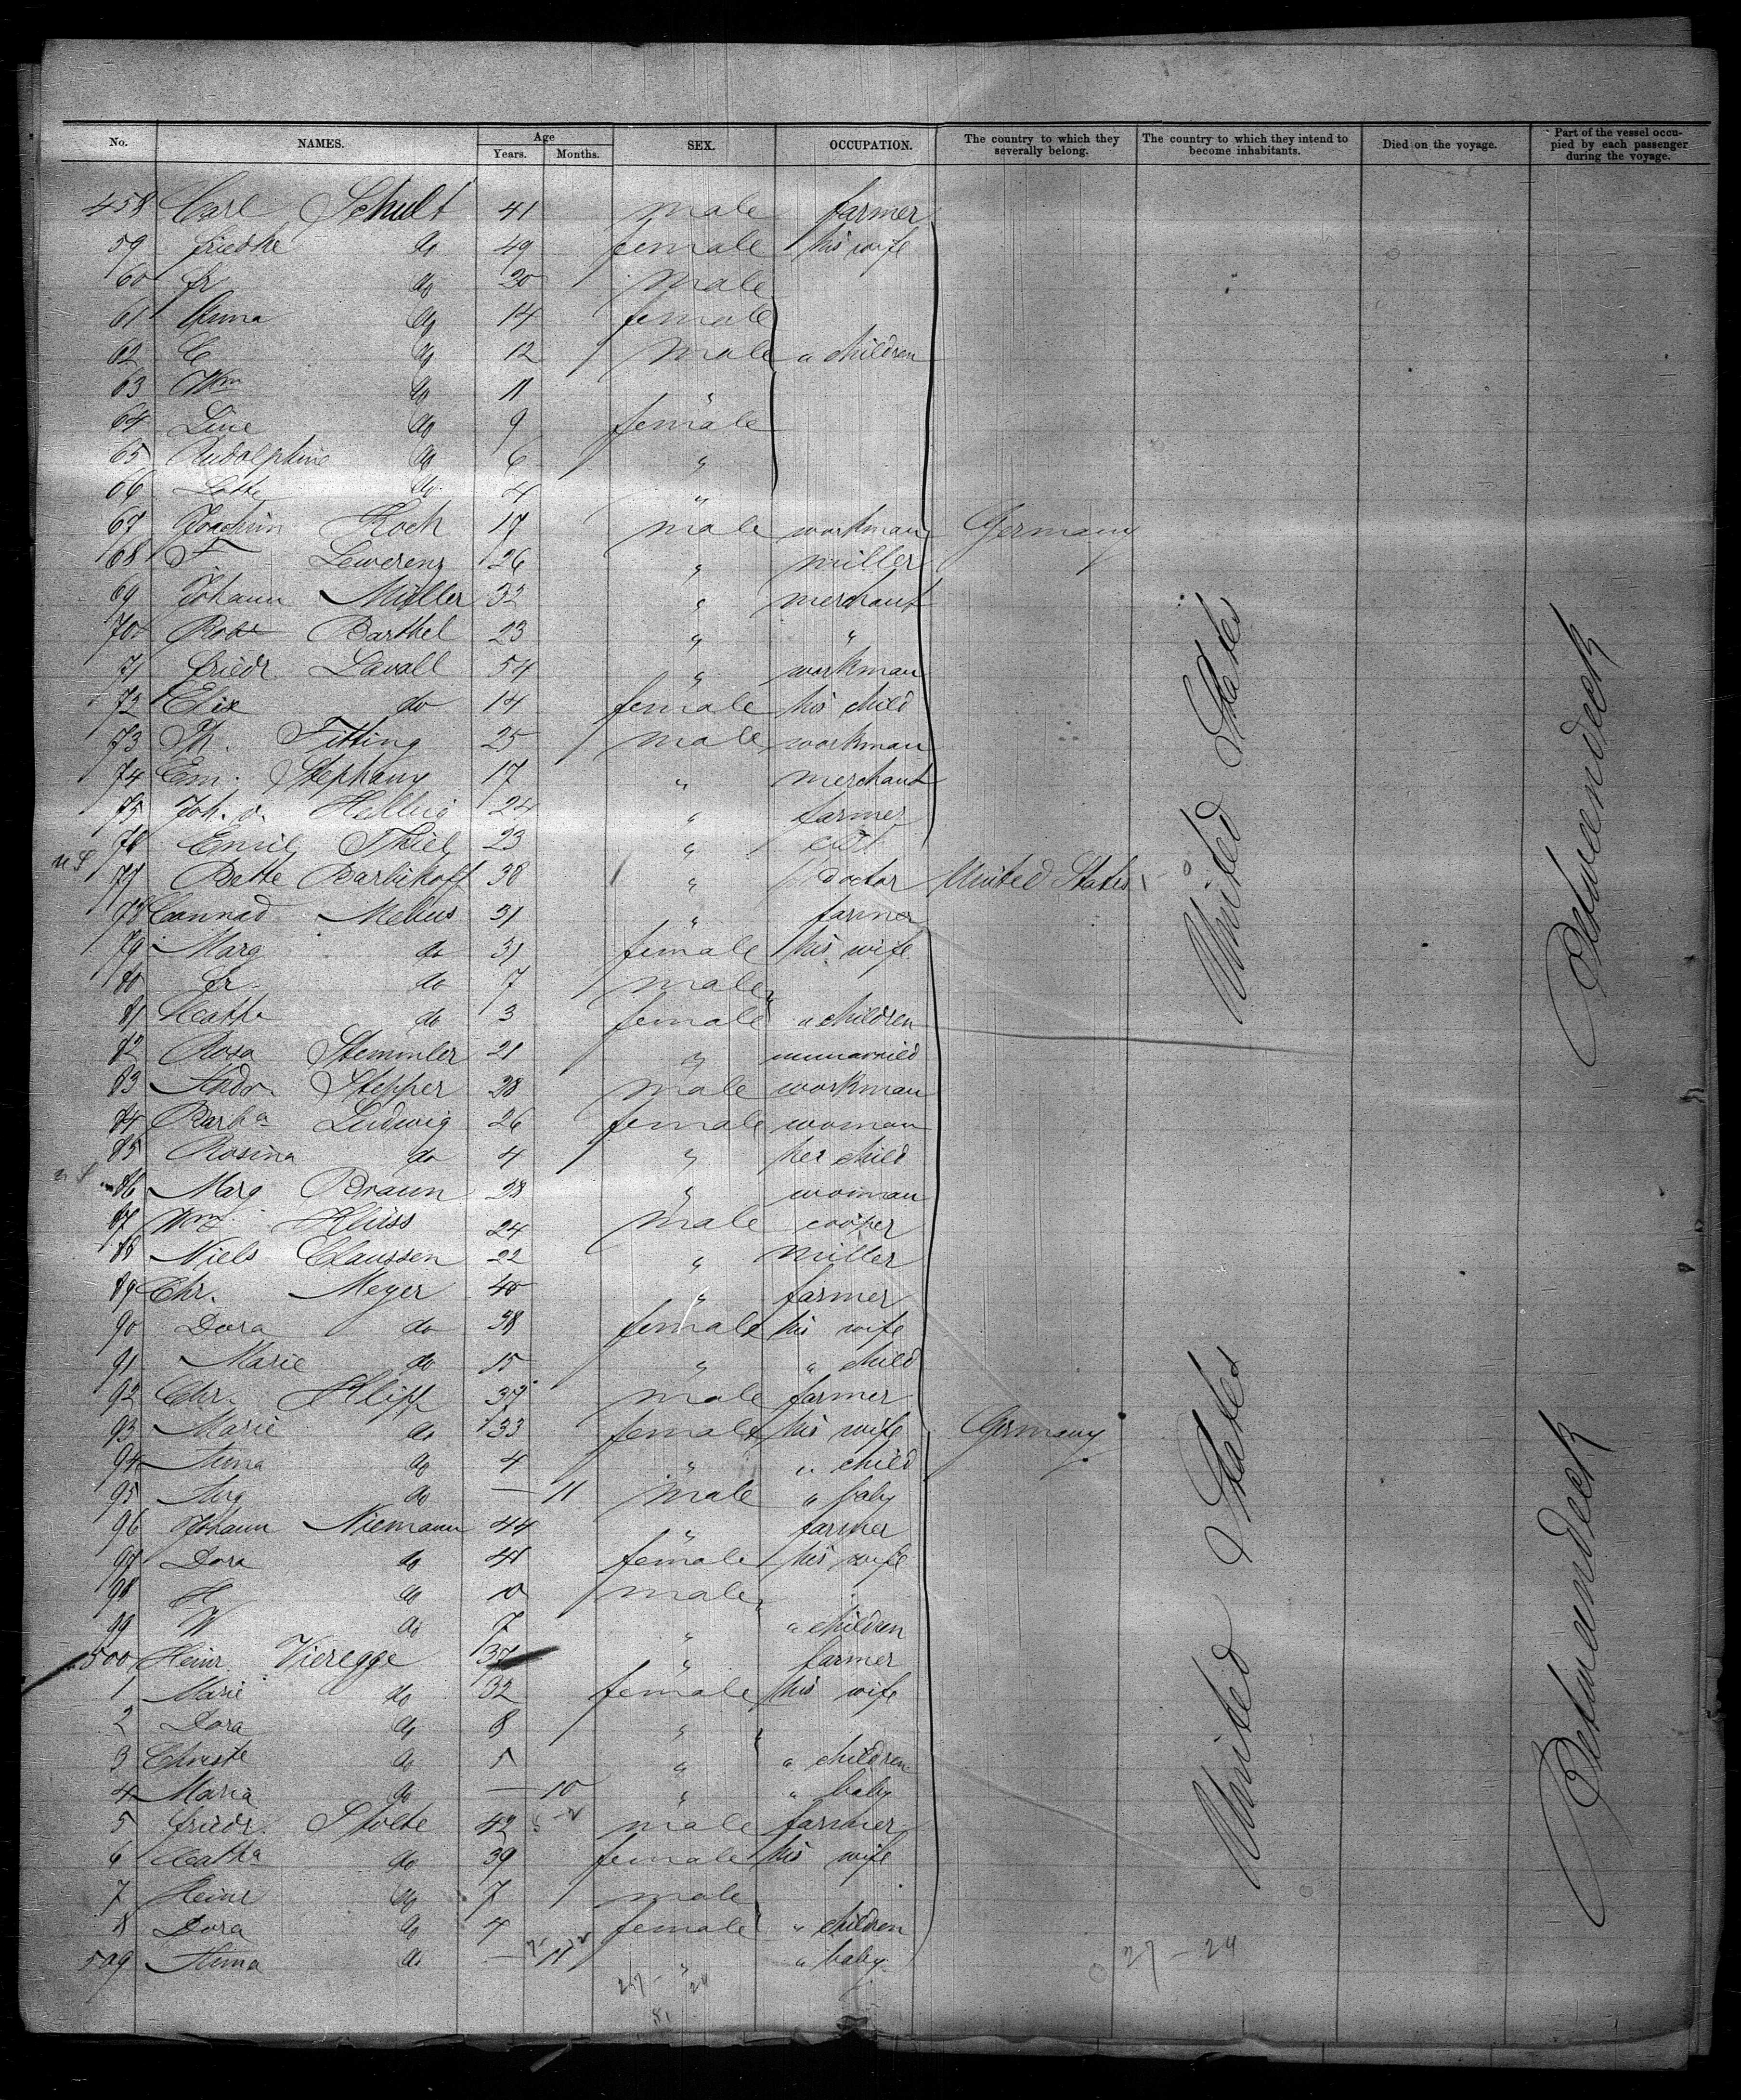 No. NAMES. Age Years. Months. SEX. OCCUPATION. The country to which they severally belong. The country to which they intend to become inhabitants. Died on the voyage. Part of the vessel occupied by each passenger during the voyage.
458 Carl Schult 41 male farmer
59 Friedke do 49 female his wife
60 Fr do 20 male
61 Anna do 14 female
62 C do 12 male " children
63 Wm do 11 "
64 Line do 9 female
65 Rudolphine do 6 "
66 Lotte do 4 "
67 Joachim Koch 17 male workman Germany
68 F Lewerenz 26 " miller
69 Johann Müller 32 " merchant
70 Robt Barthel 23 " "
71 Friedr. Lavall 54 " workman
72 Elise do 14 female his child
73 Th. Fitting 25 male workman
74 Em. Stephany 17 " merchant
75 Joh. v. Hellwig 24 " farmer
76 Emil Thiel 23 "
77 Bette Barbihoff 38 " doctor United States
78 Conrad Melius 31 " farmer
79 Marg do 31 female his wife
80 Fr. do 7 male
81 Cathe do 3 female " children
82 Rosa Stemmler 21 " unmarried
83 Andr. Stepper 28 male workman
84 Barba Ludwig 26 female woman
85 Rosina do 4 " her child
86 Marg Braun 28 " woman
87 Wm Kluss 24 male cooper
88 Niels Claussen 22 " miller
89 Chr. Meyer 40 " farmer
90 Dora do 38 female his wife
91 Marie do 15 " " child
92 Chr. Klipp 37 male farmer
93 Marie do 33 female his wife Germany
94 Anna do 4 " " child
95 Aug do — 11 male " baby
96 Johann Niemann 44 " farmer
97 Dora do 41 female his wife
98 H do 10 male
99 W do 7 " " children
500 Heinr. Vieregge 37 " farmer
1 Marie do 32 female his wife
2 Dora do 8 "
3 Christe do 5 " " children
4 Maria do — 10 " " baby
5 Friedr. Stolte 42 male farmer
6 Catha do 39 female his wife
7 Heinr do 7 male
8 Dora do 4 female " children
509 Anna do — 11 " " baby
27 - 24
27 - 24
United States
United States
Betweendeck
Betweendeck